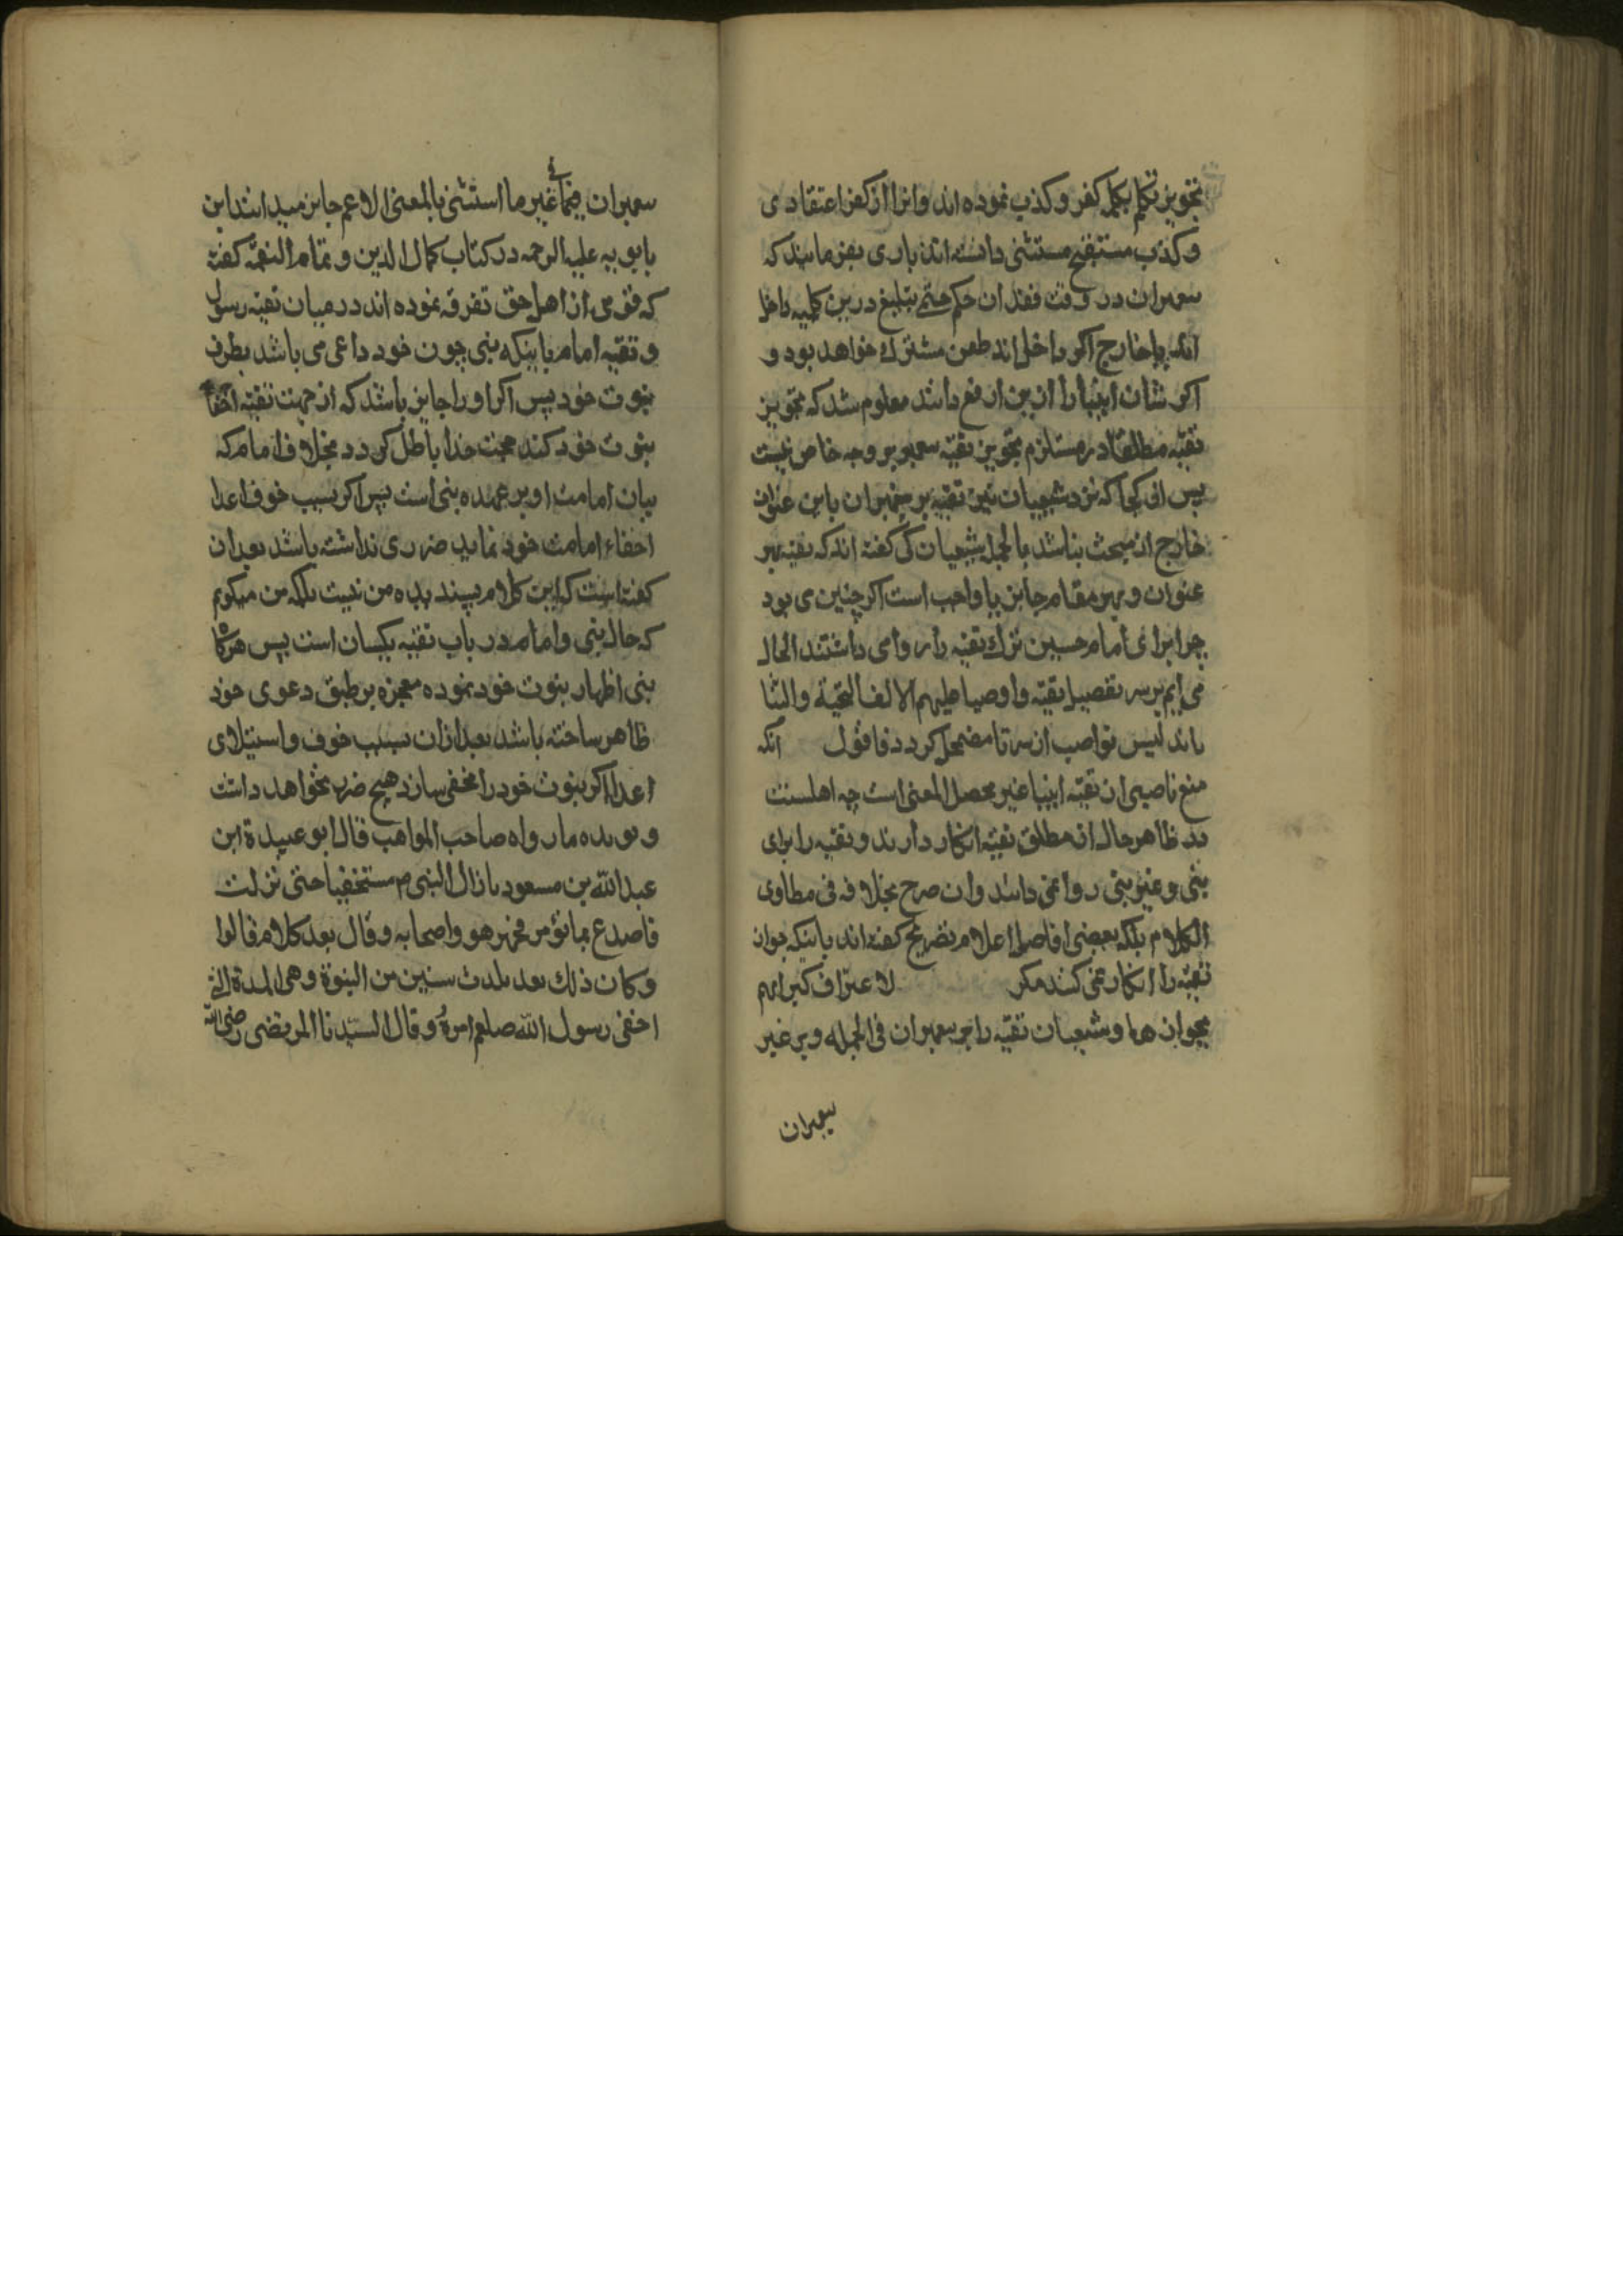 تجویز تکلم بکلمه کفر و کذب نموده اند وانرا از کفر اعتقادی
و کذب مستقبح مستثنی دانسته اند باری بفرمایند که
پیغمبران در وقت فقدان حکم حتم تبلیغ درین کلیه داخل
اند یا خارج اگر داخل اند طعن مشترک خواهد بود و
اگر شان انبیا را ازین ارفع دانند معلوم شد که تجویز
تقیه مطلقا در مستلزم تجویز تقیه پیغمبر بر وجه خاص نیست
پس از کجا که نزد شیعیان نیز تقیه بر پیغمبران باین عنوان
خارج از مبحث نباشد بالجمله شیعیان کی گفته اند که تقیه بهر
عنوان و بهر مقام جایز یا واجب است اگر چنین می بود
چرا برای امام حسین ترک تقیه را روا می داشتند الحال
می ایم بر سر تفصیل تقیه و اوصیا علیهم الالف التحیة والثنا
تا تدلیس نواصب از سر تا مضمحل گردد فاقول آنکه
منع ناصبی از تقیه انبیا غیر محصل المعنی است چه اهلسنت
بد ظاهر حال از مطلق تقیه انکار دارند و تقیه را برای
نبی و غیر نبی روا نمی دانند وان صرح بخلافه فی مطاوی
الکلام بلکه بعضی افاضل اعلام تصریح گفته اند باینکه جواز
تقیه را انکار نمی کنند مگر لاعتراف کبرایهم
بجوازها و شیعیان تقیه را بر پیغمبران فی الجمله و بر غیر
پیغمبران
پیغمبران فیما غیر ما استثنی بالمعنی الاعم جایز میدانند ابن
بابویه علیه الرحمه در کتاب کمال الدین و تمام النعمة گفته
که قومی از اهل حق تفرقه نموده اند در میان تقیه رسول
و تقیه امام باینکه نبی چون خود داعی می باشد بطرف
نبوت خود پس اگر او را جایز باشد که از جهت تقیه اخفا
نبوت خود کند حجت خدا باطل گردد بخلاف امام که
بیان امامت او بر عهده نبی است پس اگر بسبب خوف اعدا
اخفاء امامت خود نماید ضرری نداشته باشد بعد ازان
گفته است که این کلام پسندیده من نیست بلکه من میگویم
که حال نبی و امام در باب تقیه یکسان است پس هرگاه
نبی اظهار نبوت خود نموده معجزه بر طبق دعوی خود
ظاهر ساخته باشد بعد ازان بسبب خوف و استیلای
اعدا اگر نبوت خود را مخفی سازد هیچ ضرر نخواهد داشت
و یویده ما رواه صاحب المواهب قال ابو عبیدة ابن
عبد الله بن مسعود ما زال النبی م مستخفیا حتی نزلت
فاصدع بما تؤمر فجهر هو و اصحابه و قال بعد کلام قالوا
و کان ذلک بعد ثلاث سنین من النبوة و هی المدة التی
اخفی رسول الله صلعم امره و قال السید نا المرتضی رضی الله